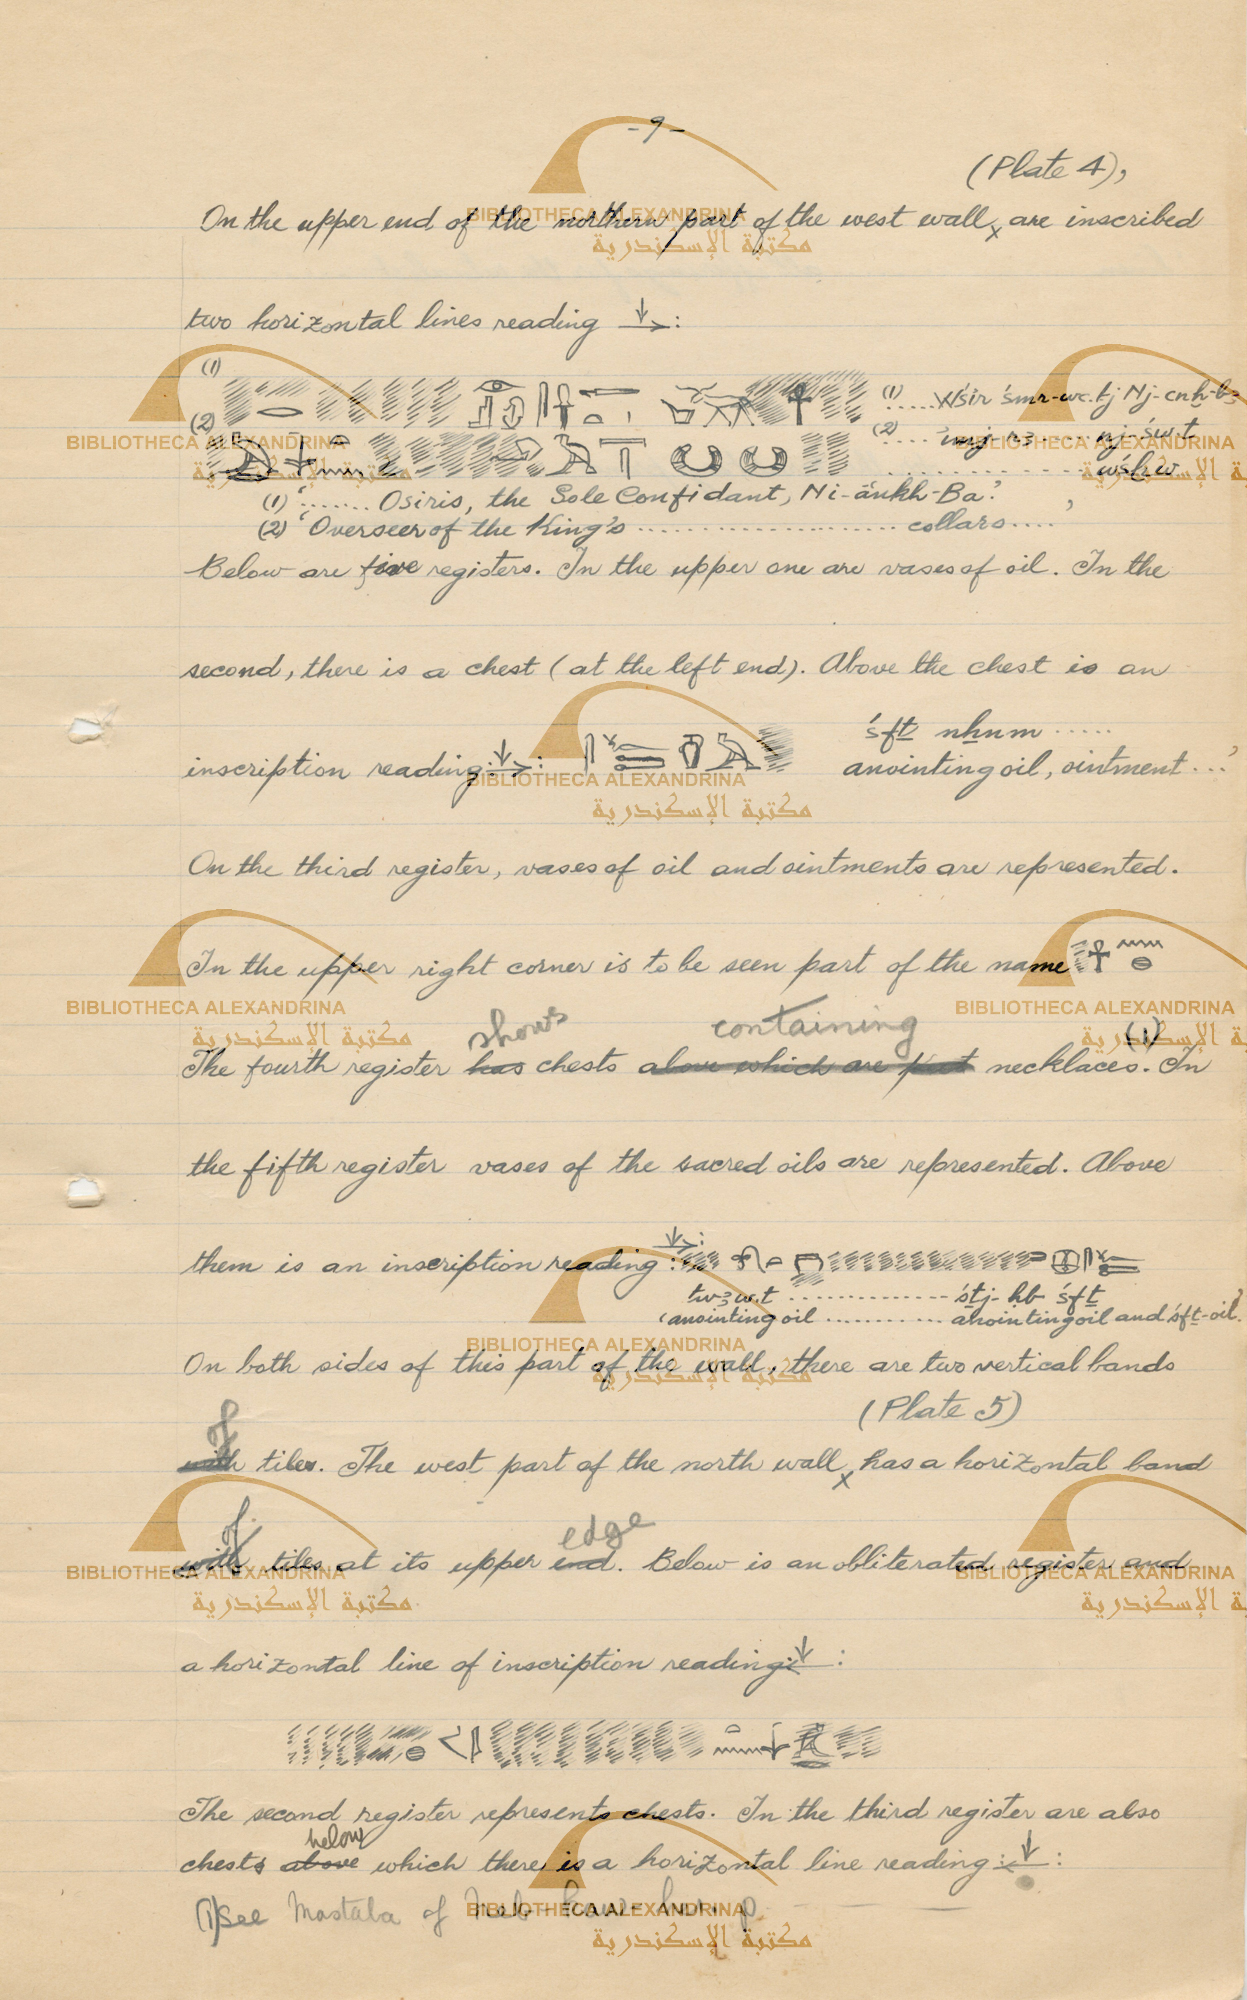 -9-
(Plate 4),
On the upper end of the northern part of the west wall x are inscribed
two horizontal lines reading :
(1) (1) .....Wśir śmr-wc.tj Nj-cnḫ-b3
(2) (2) .... imj-r3 .... nj-św.t
.................. wśḫw
(1) '....... Osiris, the Sole Confidant, Ni-ankh-Ba.'
(2) 'Overseer of the King's .................... collars....'
Below are five registers. In the upper one are vases of oil. In the
second, there is a chest (at the left end). Above the chest is an
śfṯ nẖnm .....
inscription reading : anointing oil, ointment ...'
On the third register, vases of oil and ointments are represented.
In the upper right corner is to be seen part of the name
shows containing
The fourth register has chests above which are put necklaces. (1) In
the fifth register vases of the sacred oils are represented. Above
them is an inscription reading :
tw3w.t .............. śṯj-ḥb śfṯ
'anointing oil ........... anointing oil and śfṯ-oil.'
On both sides of this part of the wall, there are two vertical bands
of (Plate 5)
with tiles. The west part of the north wall x has a horizontal band
of edge
with tiles at its upper end. Below is an obliterated register and
a horizontal line of inscription reading :
The second register represents chests. In the third register are also
below
chests above which there is a horizontal line reading :
(1) See Mastaba of Neb-kaw-her, p.
BIBLIOTHECA ALEXANDRINA
مكتبة الإسكندرية